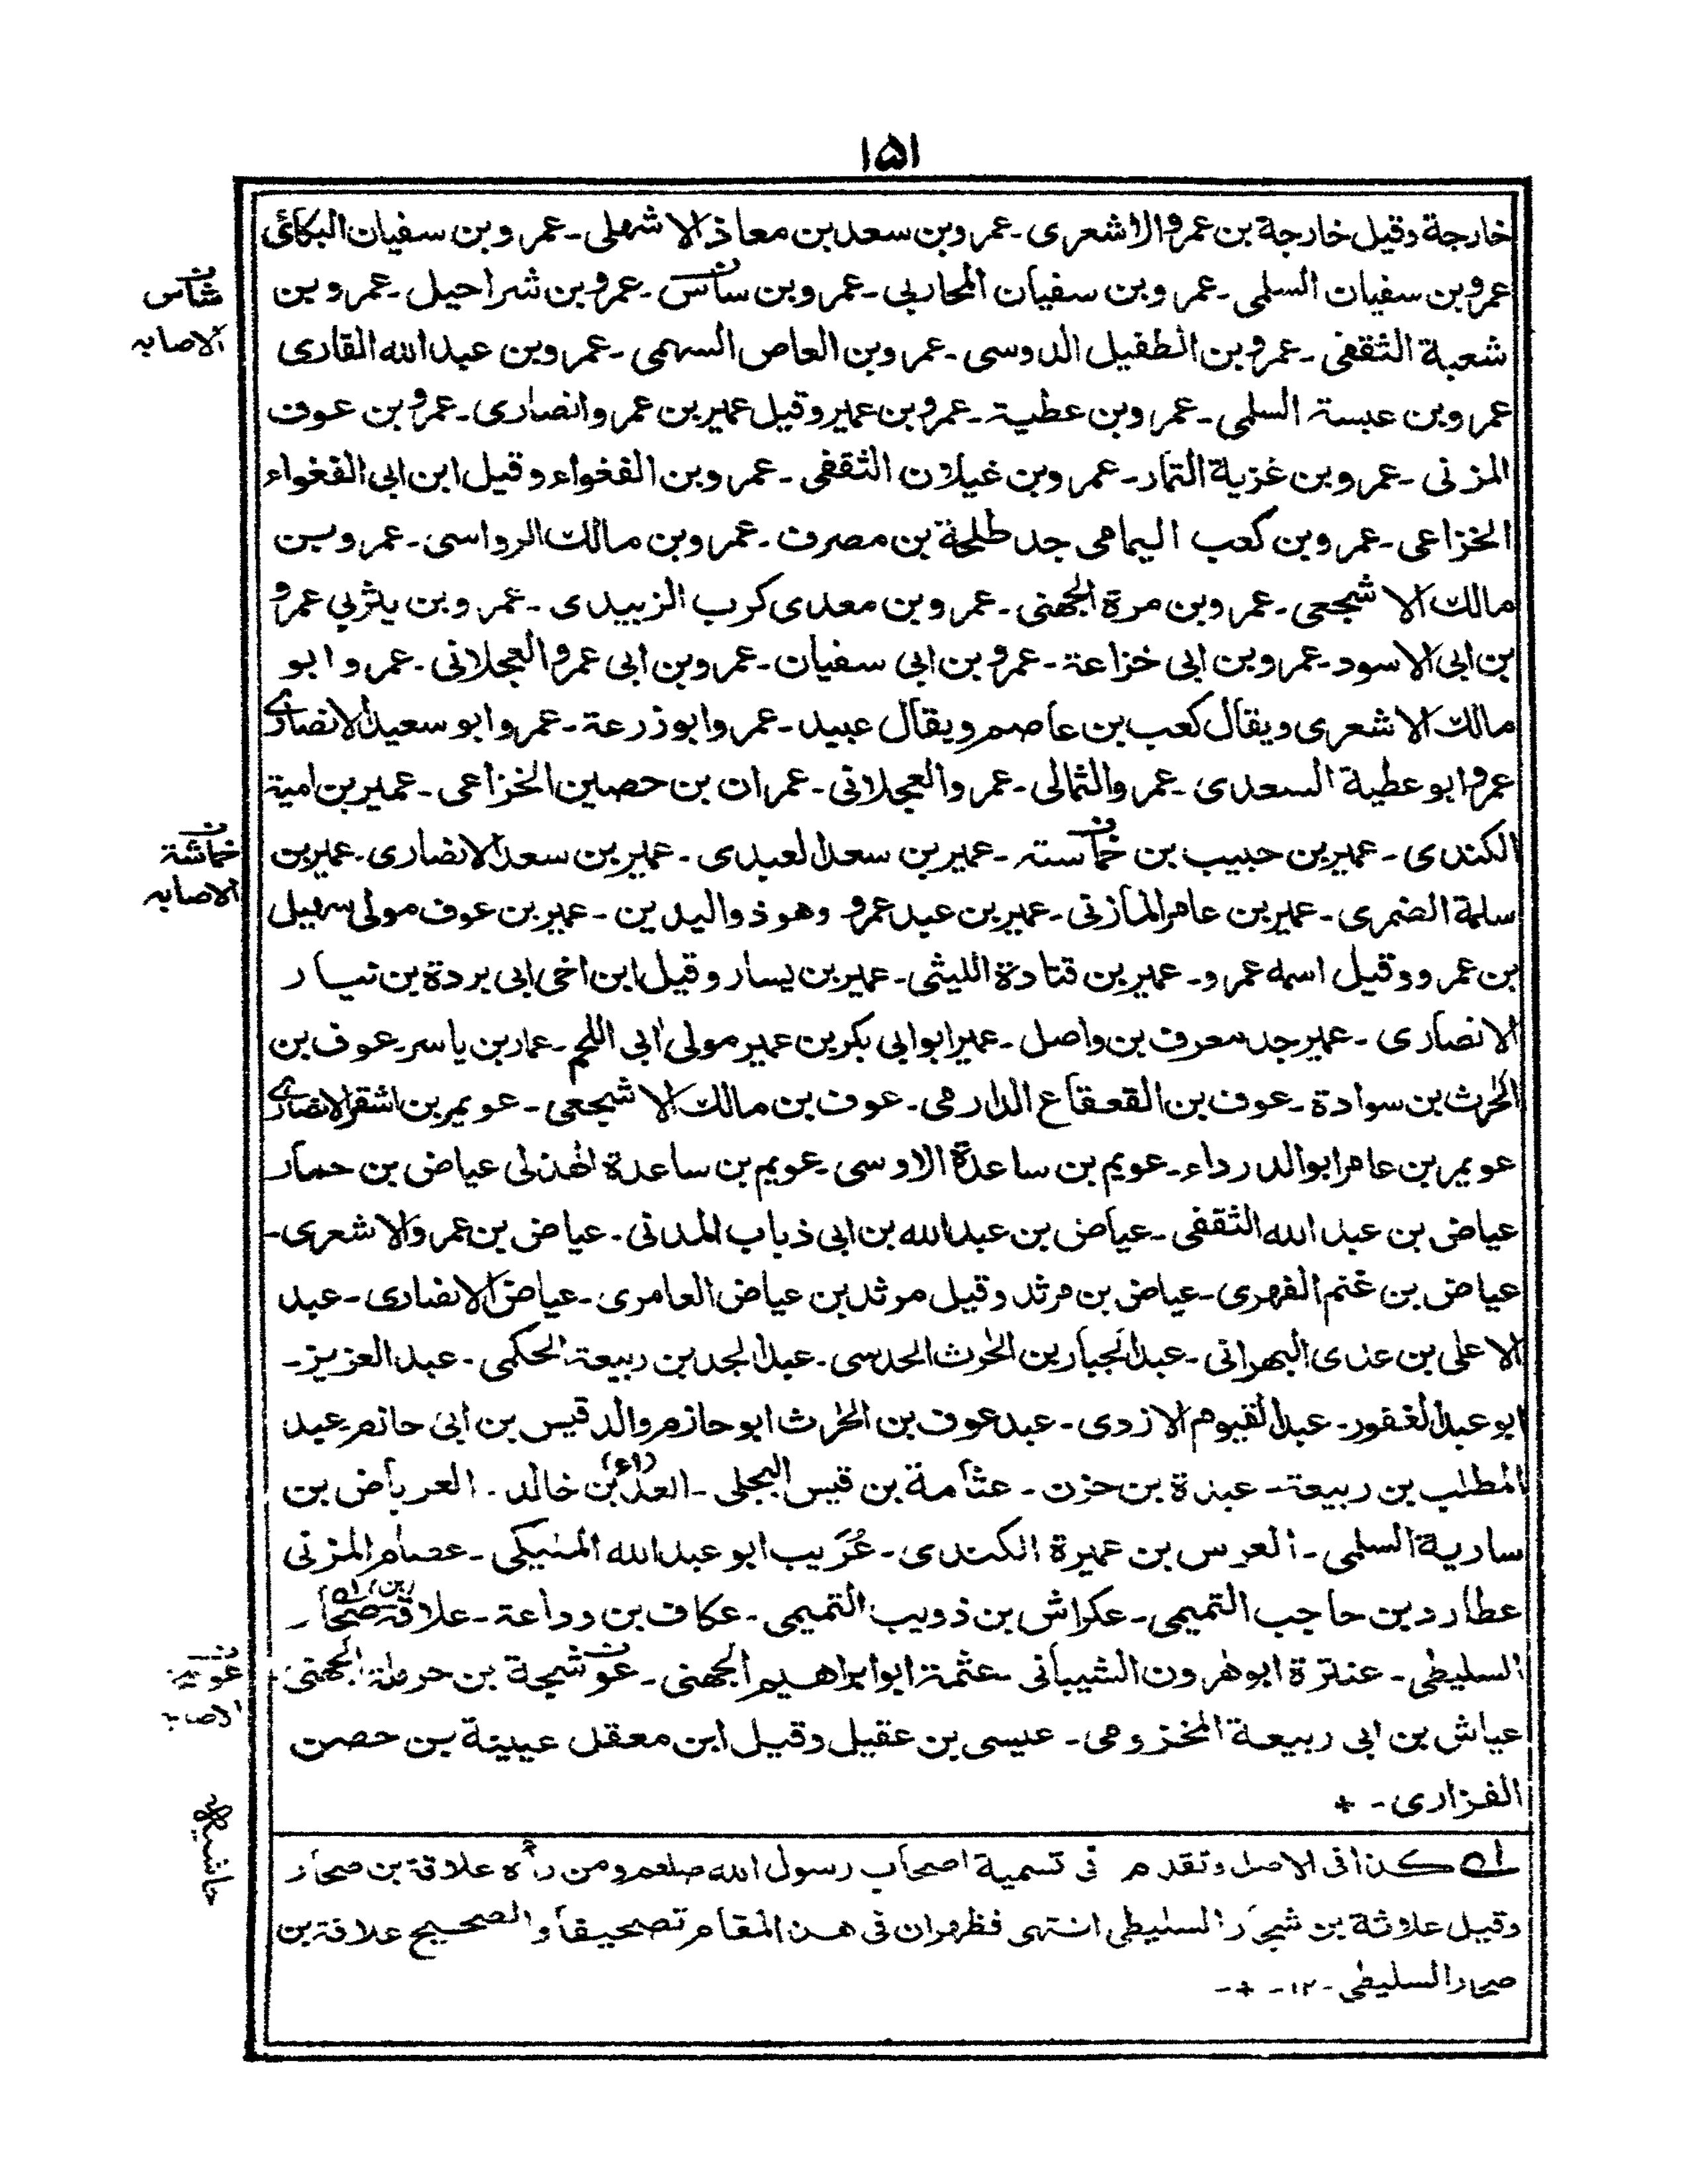 ۱۵۱
خارجة وقيل خارجة بن عمرو الاشعرى ـ عمرو بن سعد بن معاذ الاشهلى ـ عمرو بن سفيان البكائى
عمرو بن سفيان السلمى ـ عمرو بن سفيان المحاربى ـ عمرو بن ساس ـ عمرو بن شراحيل ـ عمرو بن
شاس
الاصابه
شعبة الثقفى ـ عمرو بن الطفيل الدوسى ـ عمرو بن العاص السهمى ـ عمرو بن عبد الله القارى
عمرو بن عبسة السلمى ـ عمرو بن عطية ـ عمرو بن عمير وقيل عمير بن عمرو انصارى ـ عمرو بن عوف
المزنى ـ عمرو بن غزية التمار ـ عمرو بن غيلان الثقفى ـ عمرو بن الفغواء وقيل ابن ابى الفغواء
الخزاعى ـ عمرو بن كعب اليمامى جد طلحة بن مصرف ـ عمرو بن مالك الرواسى ـ عمرو بن
مالك الاشجعى ـ عمرو بن مرة الجهنى ـ عمرو بن معدى كرب الزبيدى ـ عمرو بن يثربى عمرو
بن ابى الاسود ـ عمرو بن ابى خزاعة ـ عمرو بن ابى سفيان ـ عمرو بن ابى عمرو العجلانى ـ عمرو ابو
مالك الاشعرى ويقال كعب بن عاصم ويقال عبيد ـ عمرو ابو زرعة ـ عمرو ابو سعيد الانصارى
عمرو ابو عطية السعدى ـ عمرو الثمالى ـ عمرو العجلانى ـ عمران بن حصين الخزاعى ـ عمير بن امية
الكندى ـ عمير بن حبيب بن خماسته ـ عمير بن سعد العبدى ـ عمير بن سعد الانصارى ـ عمير بن
خماشة
الاصابه
سلمة الضمرى ـ عمير بن عامر المازنى ـ عمير بن عبد عمرو وهو ذو اليدين ـ عمير بن عوف مولى سهيل
بن عمرو وقيل اسمه عمرو ـ عمير بن قتادة الليثى ـ عمير بن يسار وقيل ابن اخى ابى بردة بن نيار
الانصارى ـ عمير جد معرف بن واصل ـ عمير ابو ابى بكر بن عمير مولى ابى اللحم ـ عمار بن ياسر ـ عوف بن
الحرث بن سوادة ـ عوف بن القعقاع الدارمى ـ عوف بن مالك الاشجعى ـ عويمر بن اشقر الانصارى
عويمر بن عامر ابو الدرداء ـ عويم بن ساعدة الاوسى ـ عويم بن ساعدة الهذلى عياض بن حمار
عياض بن عبد الله الثقفى ـ عياض بن عبد الله بن ابى ذباب المدنى ـ عياض بن عمرو الاشعرى ـ
عياض بن غنم الفهرى ـ عياض بن مرثد وقيل مرثد بن عياض العامرى ـ عياض الانصارى ـ عبد
الاعلى بن عدى البهرانى ـ عبد الجبار بن الحرث الحدسى ـ عبد الجد بن ربيعة الحكمى ـ عبد العزيز ـ
ابو عبد الغفور ـ عبد القيوم الازدى ـ عبد عوف بن الحرث ابو حازم والد قيس بن ابى حازم عبد
المطلب بن ربيعة ـ عبدة بن حزن ـ عثامة بن قيس البجلى ـ العد(اء) بن خالد ـ العرباض بن
سارية السلمى ـ العرس بن عميرة الكندى ـ عُرَيب ابو عبد الله المنيكى ـ عصام المزنى
عطارد بن حاجب التميمى ـ عكراش بن ذويب التميمى ـ عكاف بن وداعة ـ علاقة (بن) صحار ـ
السليطى ـ عنترة ابو هرون الشيبانى ـ عثمة ابو ابراهيم الجهنى ـ عوشجة بن حرملة الجهنى ـ
الاصابه
عياش بن ابى ربيعة المخزومى ـ عيسى بن عقيل وقيل ابن معقل عيينة بن حصن
الفزارى ـ +
حاشيه
له كذا فى الاصل وتقدم فى تسمية اصحاب رسول الله صلعم ومن رأه علاقة بن صحار
وقيل علاثة بن شجار السليطى انتهى فظهر ان فى هذا المقام تصحيفا والصحيح علاقة بن
صحار السليطى ـ ۱۲ ـ + ـ